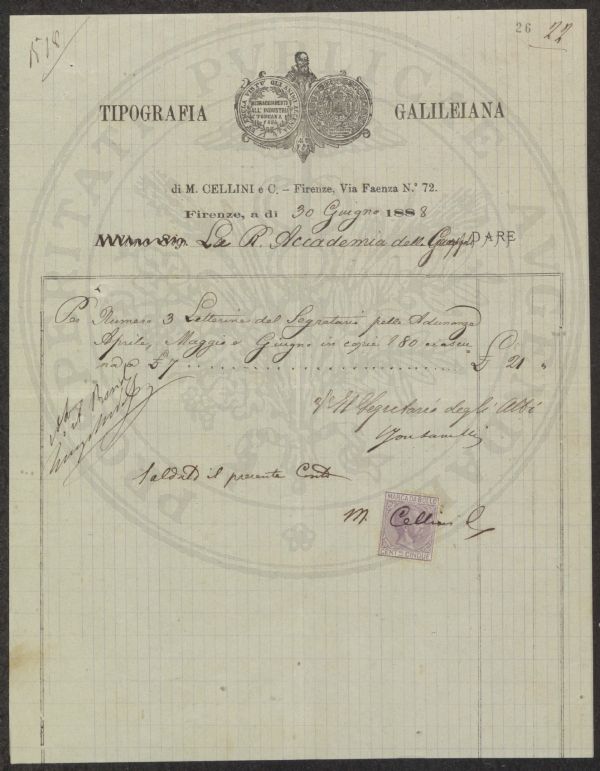 N 18
26 22
TIPOGRAFIA GALILEIANA
di M. CELLINI e C. – Firenze, Via Faenza N.° 72.
Firenze, a dì 30 Giugno 1888
La R. Accademia dell DARE
Per Numero 3 Letterine del Segretario pelle Adunanze
Aprile, Maggio e Giugno in copie 180 ciascu
na a £ 7 . . . . . . . . . . £ 21 "
Il Segretario degli Atti
Saldato il presente Conto
M. Cellini C
MARCA DA BOLLO
CENT. CINQUE